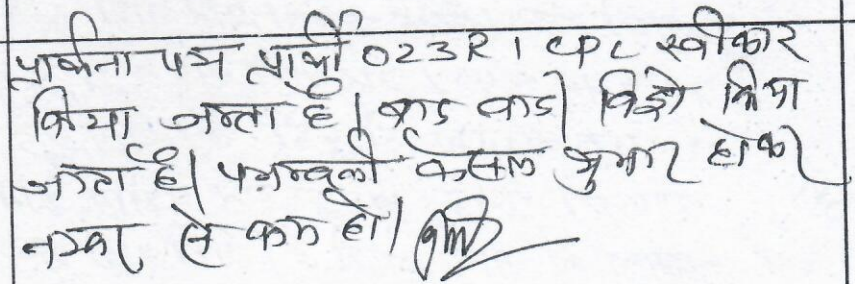 प्रार्थना पत्र प्रार्थी 023R1 CPC स्वीकार
किया जाता है। वाद वादी विड्रो किया
जाता है। पत्रावली फैसल शुमार होकर
नम्बर से कम हो।